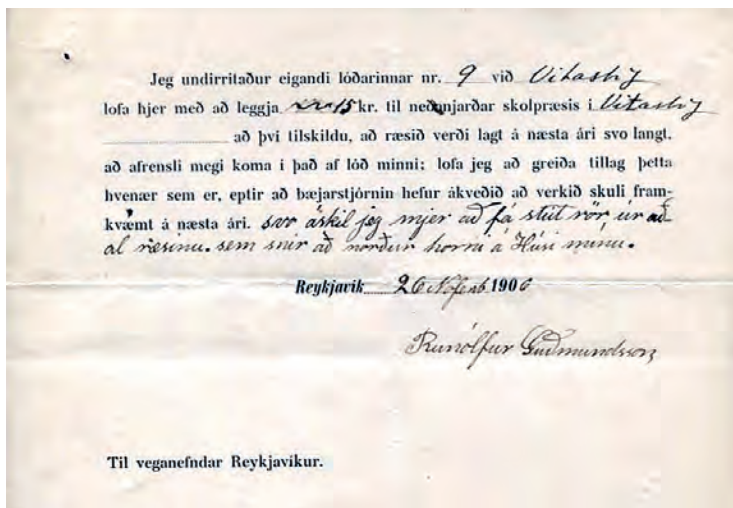 Jeg undirritaður eigandi lóðarinnar nr. 9 við Vitastíg
lofa hjer með að leggja 15 kr. til neðanjarðar skolpræsis í Vitastíg
að því tilskildu, að ræsið verði lagt á næsta ári svo langt,
að afrensli megi koma í það af lóð minni; lofa jeg að greiða tillag þetta
hvenær sem er, eptir að bæjarstjórnin hefur ákveðið að verkið skuli fram-
kvæmt á næsta ári. svo áskil jeg mjer að fá stút rör úr að
al ræsinu. sem snir að norður horni á Húsi mínu.
Reykjavík 26 Nófenb 1906
Runólfur Guðmundsson
Til veganefndar Reykjavíkur.